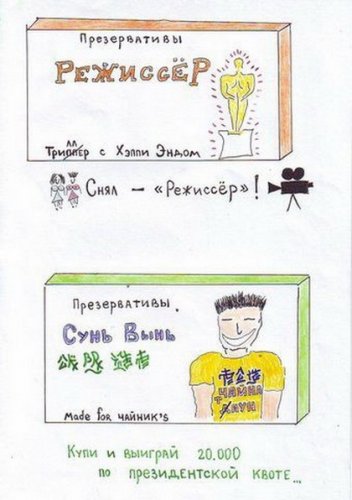 Презервативы
Режиссёр
лл
Триппер с Хэппи Эндом
Снял – «Режиссёр»!
Презервативы
Сунь Вынь
ЧАЙНА
т ДАУН
Made for чайник's
Купи и выиграй 20.000
по президентской квоте...